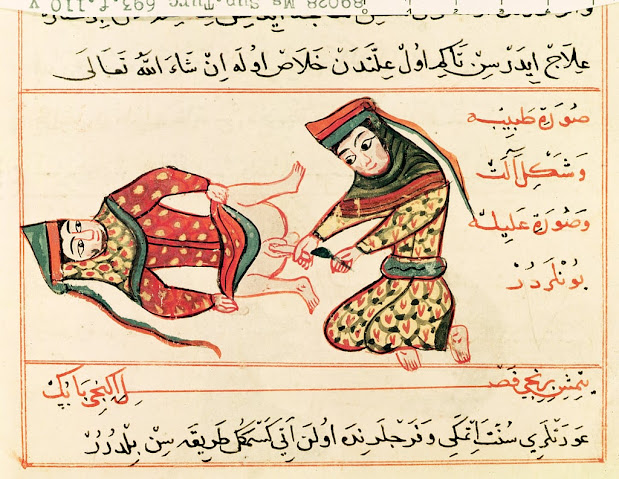 89028 Ms Sup. Turc 693 f.110 v
علاج ايدر سن تاكم اول علتدن خلاص اوله ان شاء الله تعالى
صورة طبيبه
وشكل آلت
وصورة عليله
بونلردر
يتمش برنجي فصل اكنجي بابك
عورتلري سنت اتمكي و فرجلرنده اولن اتي كسمكك طريقه سن بلدرر